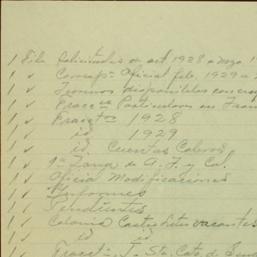 1 File Solicitudes en act 1928 a mzo 1
1 ✓ Corresp.ª Oficial feb. 1929 a
1 ✓ Terrenos disponibles con exp
1 ✓ Fracc.es Particulares en Fran
1 ✓ Fracc.tos 1928
1 ✓ id 1929
1 ✓ id. Cuentas Cobros
1 ✓ 1ª Zona de A. F. y Col
1 ✓ Oficial Modificaciones
1 ✓ Informes
1 ✓ Pendientes
1 ✓ Colonia Castro lotes vacantes
1 ✓ id id
1 ✓ Fracc.to Sta. Cata de